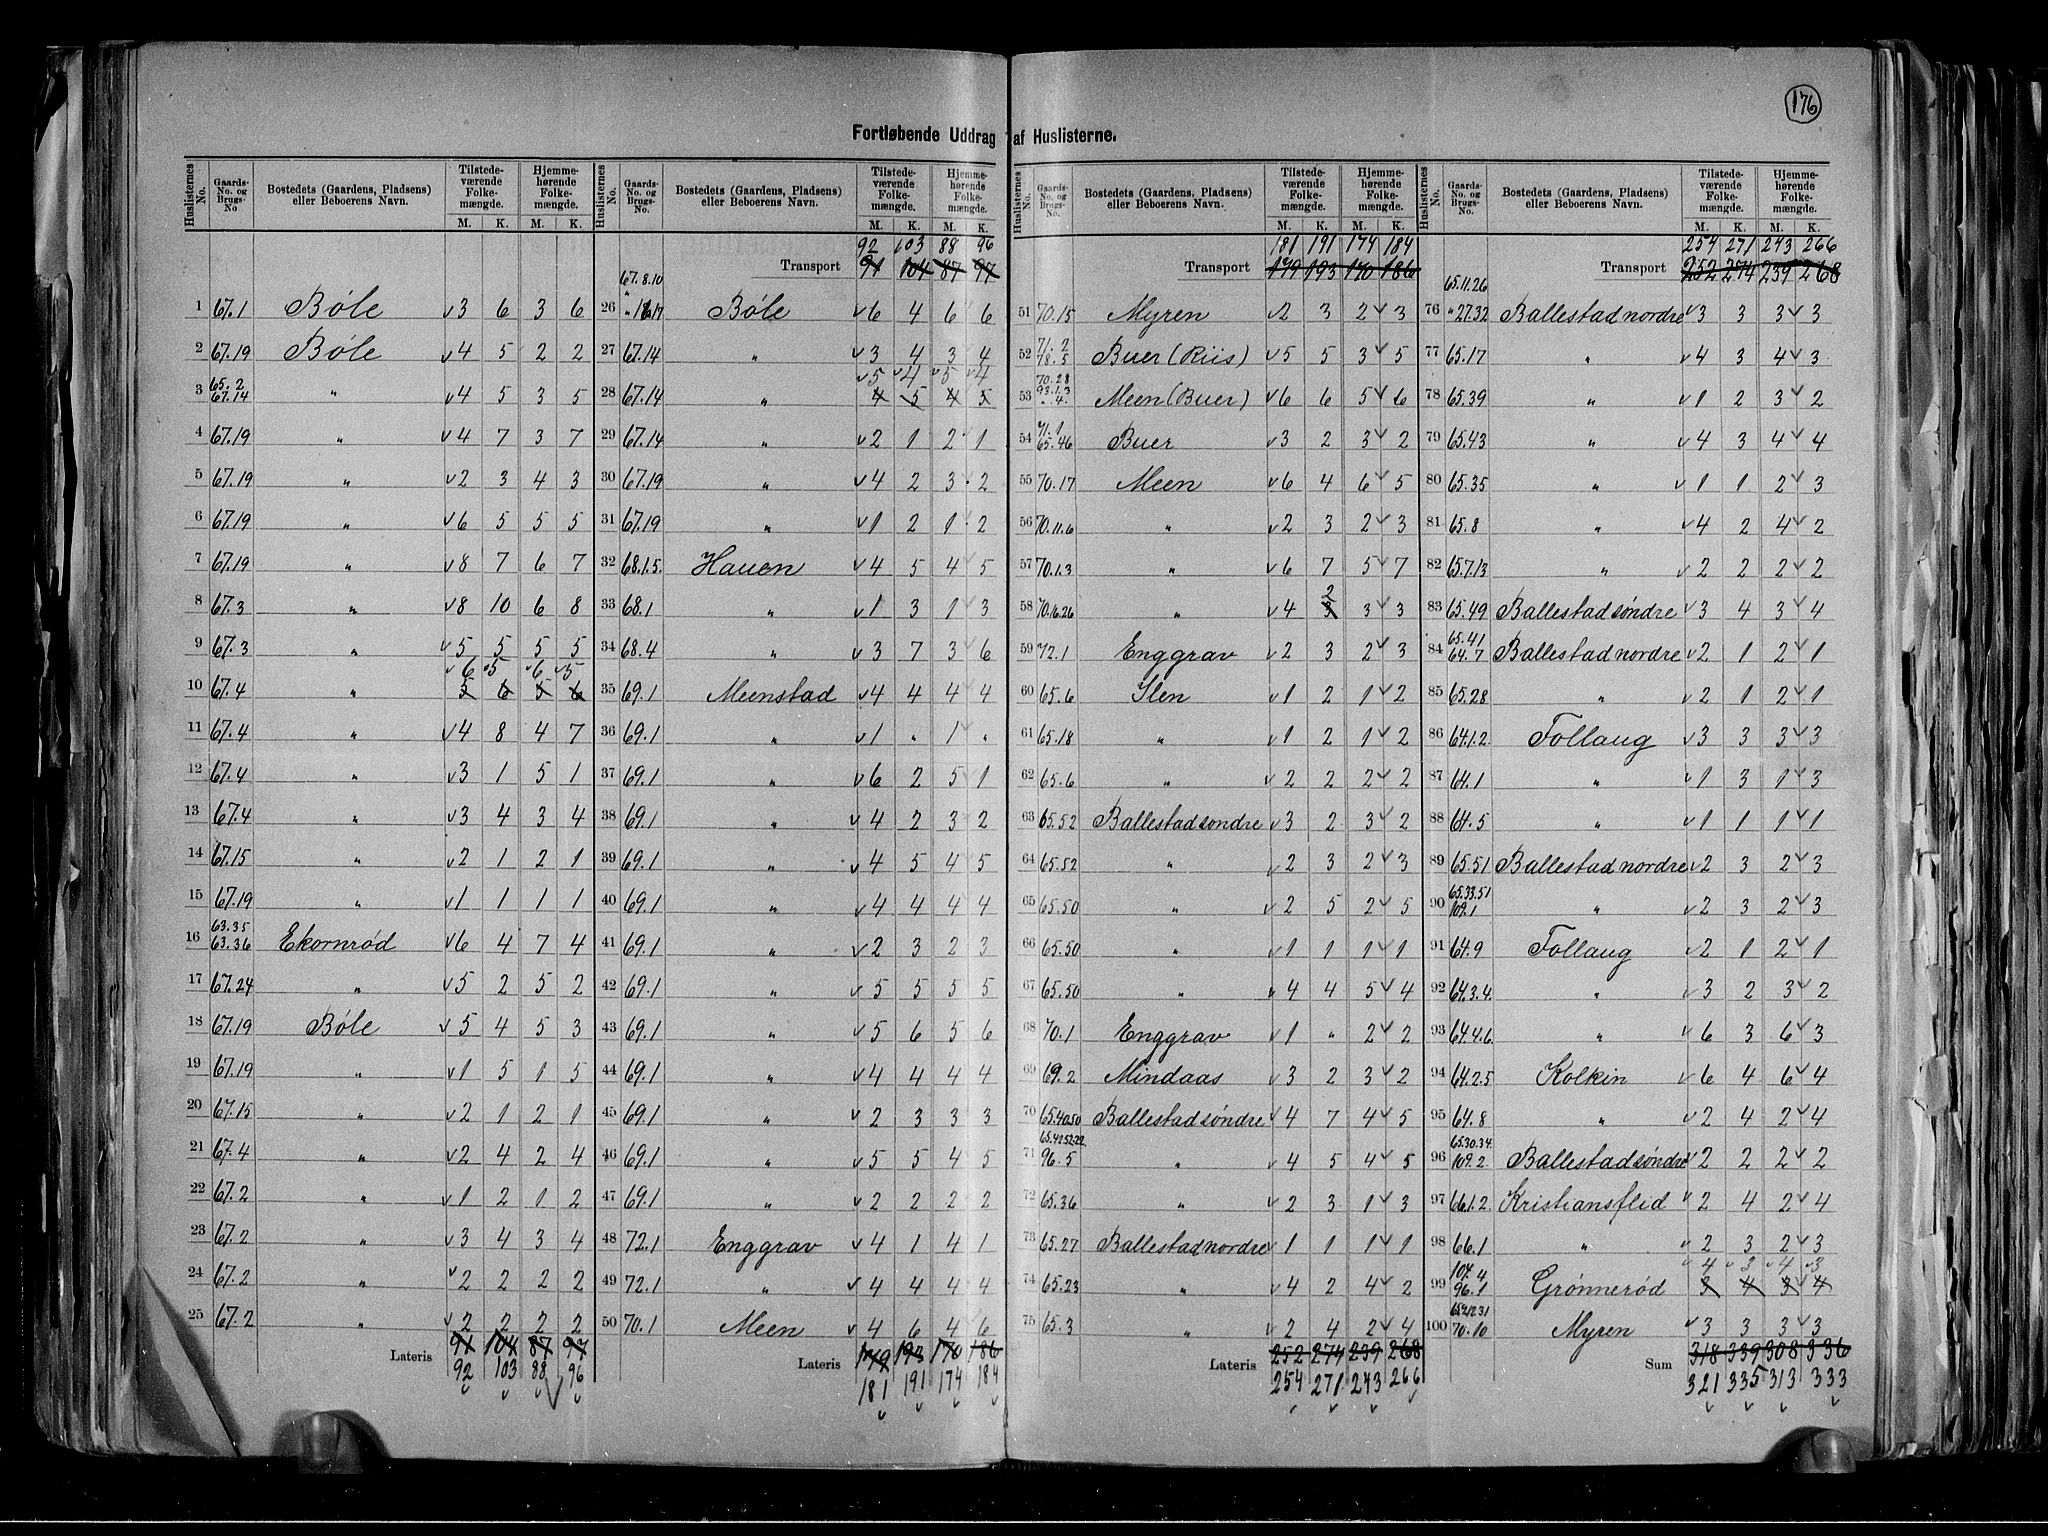 176
Fortløbende Uddrag af Huslisterne.
Huslisternes No. Gaards-No. og Brugs-No. Bostedets (Gaardens, Pladsens) eller Beboerens Navn. Tilstedeværende Folkemængde. M. K. Hjemmehørende Folkemængde. M. K.
1 67.1 Bøle 3 6 3 6
2 67.19 Bøle 4 5 2 2
3 65.2 67.14 " 4 5 3 5
4 67.19 " 4 7 3 7
5 67.19 " 2 3 4 3
6 67.19 " 6 5 5 5
7 67.19 " 8 7 6 7
8 67.3 " 8 10 6 8
9 67.3 " 5 5 5 5
6 5 6 5
10 67.4 " 5 6 5 6
11 67.4 " 4 8 4 7
12 67.4 " 3 1 5 1
13 67.4 " 3 4 3 4
14 67.15 " 2 1 2 1
15 67.19 " 1 1 1 1
16 63.35 63.36 Ekornrød 6 4 7 4
17 67.24 " 5 2 5 2
18 67.19 Bøle 5 4 5 3
19 67.19 " 1 5 1 5
20 67.15 " 2 1 2 1
21 67.4 " 2 4 2 4
22 67.2 " 1 2 1 2
23 67.2 " 3 4 3 4
24 67.2 " 2 2 2 2
25 67.2 " 2 2 2 2
Lateris 91 104 87 97
92 103 88 96
Huslisternes No. Gaards-No. og Brugs-No. Bostedets (Gaardens, Pladsens) eller Beboerens Navn. Tilstedeværende Folkemængde. M. K. Hjemmehørende Folkemængde. M. K.
92 103 88 96
Transport 91 104 87 97
26 67.8.10 " 16.17 Bøle 6 4 6 6
27 67.14 " 3 4 3 4
5 4 5 4
28 67.14 " 4 5 4 5
29 67.14 " 2 1 2 1
30 67.19 " 4 2 3 2
31 67.19 " 1 2 1 2
32 68.1.5. Hauen 4 5 4 5
33 68.1 " 1 3 1 3
34 68.4 " 3 7 3 6
35 69.1 Meenstad 4 4 4 4
36 69.1 " 1 " 1 "
37 69.1 " 6 2 5 1
38 69.1 " 4 2 3 2
39 69.1 " 4 5 4 5
40 69.1 " 4 4 4 4
41 69.1 " 2 3 2 3
42 69.1 " 5 5 5 5
43 69.1 " 5 6 5 6
44 69.1 " 4 4 4 4
45 69.1 " 2 3 3 3
46 69.1 " 5 5 4 5
47 69.1 " 2 2 2 2
48 72.1 Enggrav 4 1 4 1
49 72.1 " 4 4 4 4
50 70.1 Meen 4 6 4 6
Lateris 179 193 170 186
181 191 174 184
Huslisternes No. Gaards-No. og Brugs-No. Bostedets (Gaardens, Pladsens) eller Beboerens Navn. Tilstedeværende Folkemængde. M. K. Hjemmehørende Folkemængde. M. K.
181 191 174 184
Transport 179 193 170 186
51 70.15 Myren 2 3 2 3
52 71.2 78.5 Buer (Riis) 5 5 3 5
53 70.28 93.1.3 ".4. Meen (Buer) 6 6 5 6
54 71.1 65.46 Buer 3 2 3 2
55 70.17 Meen 6 4 6 5
56 70.11.6 " 2 3 2 3
57 70.1.3 " 6 7 5 7
2
58 70.16.26 " 4 3 3 3
59 72.1 Enggrav 2 3 2 3
60 65.6 Ilen 1 2 1 2
61 65.18 " 1 2 1 2
62 65.6 " 2 2 2 2
63 65.52 Ballestad søndre 3 2 3 2
64 65.52 " 2 3 2 3
65 65.50 " 2 5 2 5
66 65.50 " 1 1 1 1
67 65.50 " 4 4 5 4
68 70.1 Enggrav 1 " 2 2
69 69.2 Mindaas 3 2 3 2
70 65.40.50 Ballestad søndre 4 7 4 5
71 65.42.52.22. 96.5 " 4 5 4 5
72 65.36 " 2 3 1 3
73 65.27 Ballestad nordre 1 1 1 1
74 65.23 " 4 2 4 2
75 65.3 " 2 4 2 4
Lateris 252 274 239 268
254 271 243 266
Huslisternes No. Gaards-No. og Brugs-No. Bostedets (Gaardens, Pladsens) eller Beboerens Navn. Tilstedeværende Folkemængde. M. K. Hjemmehørende Folkemængde. M. K.
254 271 243 266
Transport 252 274 239 268
76 65.11.26 "27.32 Ballestad nordre 3 3 3 3
77 65.17 " 4 3 4 3
78 65.39 " 1 2 3 2
79 65.43 " 4 3 4 4
80 65.35 " 1 1 2 3
81 65.8 " 4 2 4 2
82 65.7.13 " 2 2 2 2
83 65.49 Ballestad søndre 3 4 3 4
84 65.41 64.7 Ballestad nordre 2 1 2 1
85 65.28 " 2 1 2 1
86 64.1.2. Follaug 3 3 3 3
87 64.1 " 1 3 1 3
88 64.5 " 1 1 1 1
89 65.51 Ballestad nordre 2 3 2 3
90 65.33.51 109.1 " 2 3 2 3
91 64.9 Follaug 2 1 2 1
92 64.3.4. " 3 2 3 2
93 64.4.6. " 6 3 6 3
94 64.2.5 Kolkin 6 4 6 4
95 64.8 " 2 4 2 4
96 65.30.34. 109.2. Ballestad søndre 2 2 2 2
97 66.1.2. Kristiansflid 2 4 2 4
98 66.1 " 2 3 2 3
4 3 4 3
99 107.4 96.1 Grønnerød 3 4 3 4
100 70.10 Myren 3 3 3 3
Sum 318 339 308 336
321 335 313 333